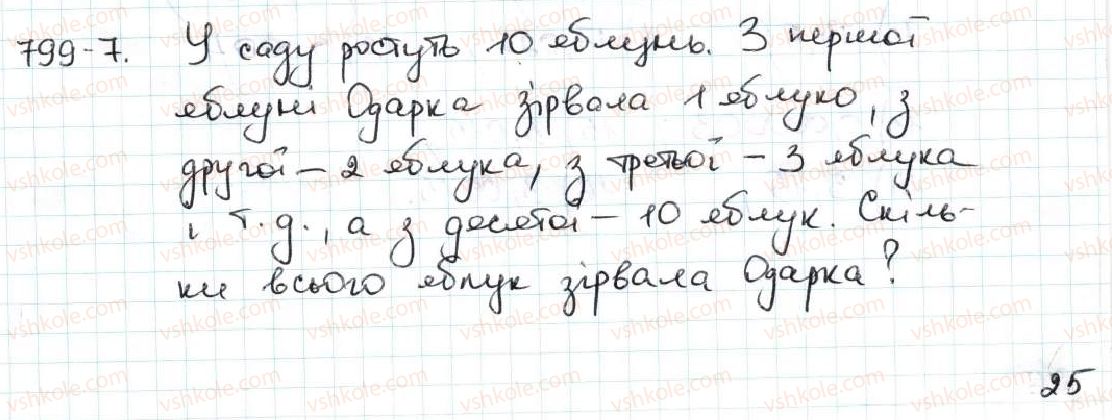 799-7. У саду ростуть 10 яблунь. З першої
яблуні Одарка зірвала 1 яблуко, з
другої - 2 яблука, з третьої - 3 яблука
і т.д., а з десятої - 10 яблук. Скіль-
ки всього яблук зірвала Одарка?
25